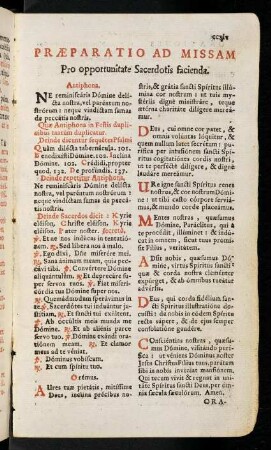 PRÆPARATIO AD MISSAM
Pro opportunitate Sacerdotis facienda.
Antiphona.
NE reminiscaris Dómine delícta
nostra, vel paréntum
nostrórum: neque vindíctam sumas
de peccátis nostris.
Que Antiphona in Festis duplicibus
tantum duplicatur.
Deinde dicuntur sequétes Psalmi
Quam dilécta tabernácula.
Benedixísti Dómine.
Inclína Dómine.
Credidi, propter
quod, De profundis.
Deinde repetitur Antiphona.
Ne reminiscaris Dómine delícta
nostra, vel paréntum nostrórum:
neque vindíctam sumas de
peccátis nostris.
Deinde Sacerdos dicit: Kyrie
eléison, Christe eléison. Kyrie
eléison. Pater noster. secretò.
℣. Et ne nos indúcas in tentatiónem.
℟. Sed libera nos à malo.
℣. Ego dixi, Dómine miserére mei.
℟. Sana ánimam meam, quia peccávi
tibi. ℣. Convértere Dómine
aliquántulum. ℟. Et deprecáre super
servos tuos. ℣. Fiat misericórdia
tua Dómine super nos.
℟. Quemádmodum sperávimus in
te. ℣. Sacerdótes tui induántur justítiam.
℟. Et sancti tui exúltent.
℣. Ab occúltis meis munda me
Dómine. ℟. Et ab aliénis parce
servo tuo. ℣. Dómine exáudi oratiónem
meam. ℟. Et clamor
meus ad te véniat.
℣. Dóminus vobíscum.
℟. Et cum spíritu tuo.
Orémus.
AUres tuæ pietátis, mitíssime
Deus, inclína précibus nostris,
& grátia sancti Spíritus illúmina
cor nostrum: ut tuis mystériis
dignè ministráre, teque
ætérna charitáte dilígere mereámur.
DEus, cui omne cor patet, &
omnis volúntas lóquitur, &
quem nullum latet secrétum: purífica
per infusiónem sancti Spíritus
cogitatiónes cordis nostri,
ut te perfectè dilígere, & dignè
laudáre mereámur.
URe igne sancti Spíritus renes
nostros, & cor nostrum Dómine:
ut tibi casto córpore serviámus,
& mundo corde placeámus.
MEntes nostras, quǽsumus
Dómine, Paráclitus, qui à
te procédit, illúminet: & indúcat
in omnem, sicut tuus promísit
Fílius, veritátem.
ADsit nobis, quǽsumus Dómine,
virtus Spíritus sancti:
quæ & corda nostra cleménter
expúrget, & ab ómnibus tueátur
advérsis.
DEus, qui corda fidélium sancti
Spíritus illustratióne docuísti:
da nobis in eódem Spíritu
recta sápere, & de ejus semper
consolatióne gaudére.
COnsciéntias nostras, quǽsumus
Dómine, visitándo purífica:
ut véniens Dóminus noster
Jesus Christus Fílius tuus, parátam
sibi in nobis invéniat mansiónem.
Qui tecum vivit & regnat in unitáte
Spíritus sancti Deus, per ómnia
sǽcula sæculórum. Amen.
ORA-